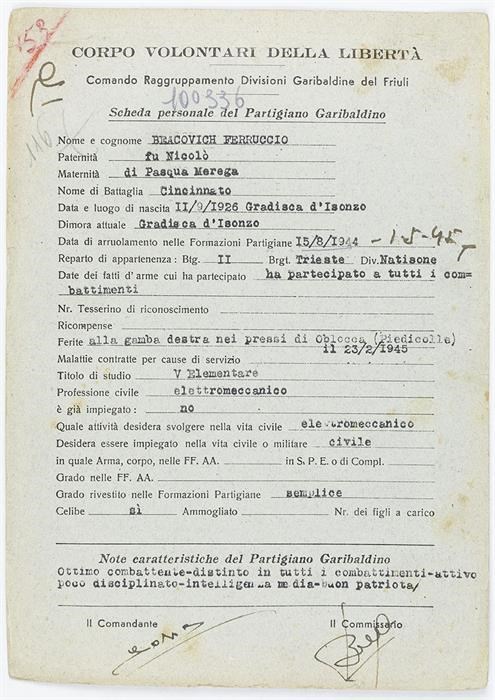 153
CORPO VOLONTARI DELLA LIBERTÀ
Comando Raggruppamento Divisioni Garibaldine del Friuli
100336
116
Scheda personale del Partigiano Garibaldino
Nome e cognome BRACOVICH FERRUCCIO
Paternità fu Nicolò
Maternità di Pasqua Merega
Nome di Battaglia Cincinnato
Data e luogo di nascita II/9/1926 Gradisca d'Isonzo
Dimora attuale Gradisca d'Isonzo
Data di arruolamento nelle Formazioni Partigiane 15/8/1944 - 1-5-45
Reparto di appartenenza: Btg. II Brgt. Trieste Div. Natisone
Date dei fatti d'arme cui ha partecipato ha partecipato a tutti i com=
battimenti
Nr. Tesserino di riconoscimento
Ricompense
Ferite alla gamba destra nei pressi di Oblocca (Piedicolle)
il 23/2/1945
Malattie contratte per cause di servizio
Titolo di studio V Elementare
Professione civile elettromeccanico
è già impiegato: no
Quale attività desidera svolgere nella vita civile elettromeccanico
Desidera essere impiegato nella vita civile o militare civile
in quale Arma, corpo, nelle FF. AA. in S. P. E. o di Compl.
Grado nelle FF. AA.
Grado rivestito nelle Formazioni Partigiane semplice
Celibe sì Ammogliato Nr. dei figli a carico
Note caratteristiche del Partigiano Garibaldino
Ottimo combattente-distinto in tutti i combattimenti-attivo
poco disciplinato-intelligenza media-buon patriota/
Il Comandante Il Commissario